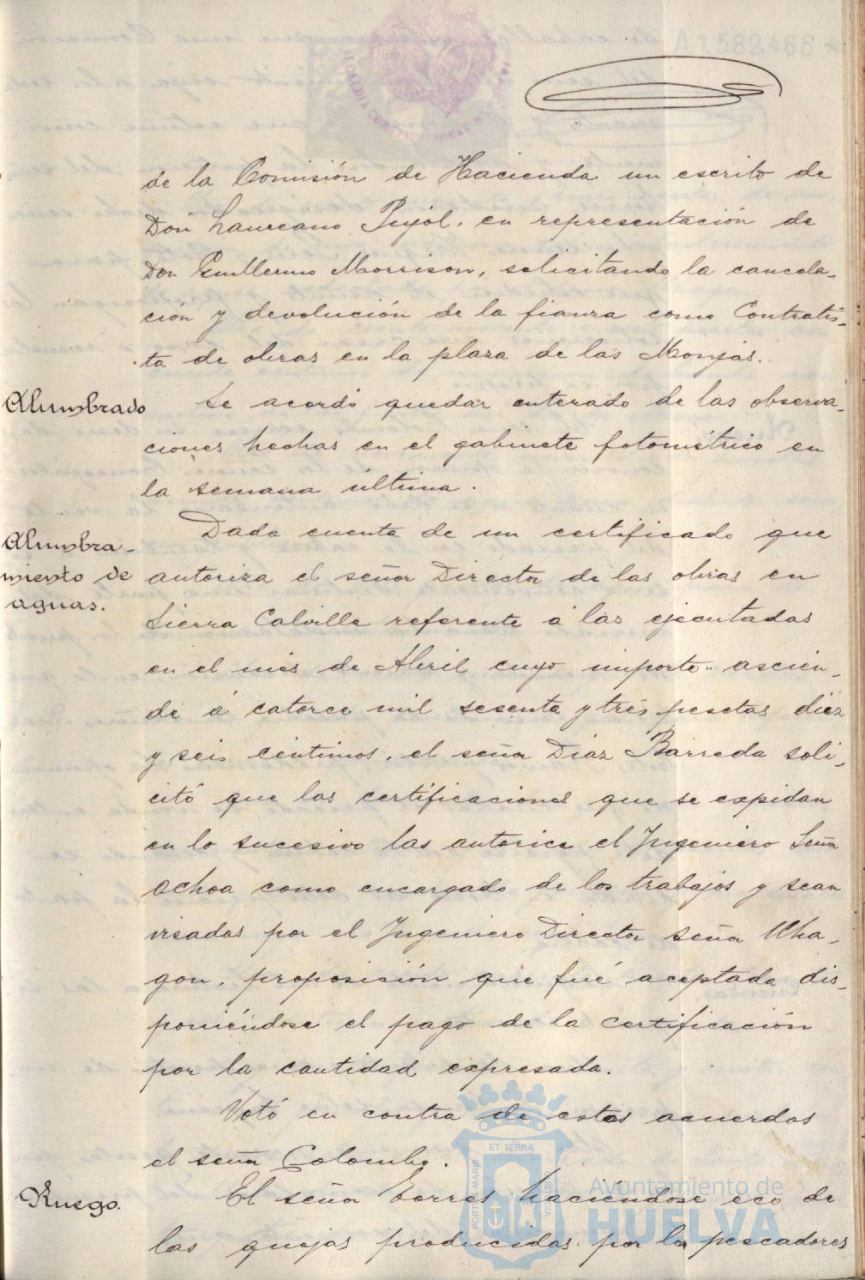 A1582466 *
de la Comisión de Hacienda un escrito de
Don Laureano Pujol, en representación de
Don Guillermo Morrison, solicitando la cancela-
ción y devolución de la fianza como Contratis-
ta de obras en la plaza de las Monjas.
Alumbrado
Se acordó quedar enterado de las observa-
ciones hechas en el gabinete fotométrico en
la semana última.
Alumbra-
miento de
aguas.
Dada cuenta de un certificado que
autoriza el señor Director de las obras en
Sierra Calvilla referente á las ejecutadas
en el mes de Abril cuyo importe ascien-
de á catorce mil sesenta y tres pesetas diez
y seis céntimos, el señor Díaz Barreda soli-
citó que las certificaciones que se expidan
en lo sucesivo las autorice el Ingeniero Señor
Ochoa como encargado de los trabajos y sean
visadas por el Ingeniero Director señor Wha-
gon, proposición que fué aceptada dis-
poniéndose el pago de la certificación
por la cantidad expresada.
Votó en contra de estos acuerdos
el señor Colombo.
Ruego.
El señor Torres haciendose eco de
las quejas producidas por los pescadores
PORTUS MARIS
ET TERRÆ
Ayuntamiento de
HUELVA